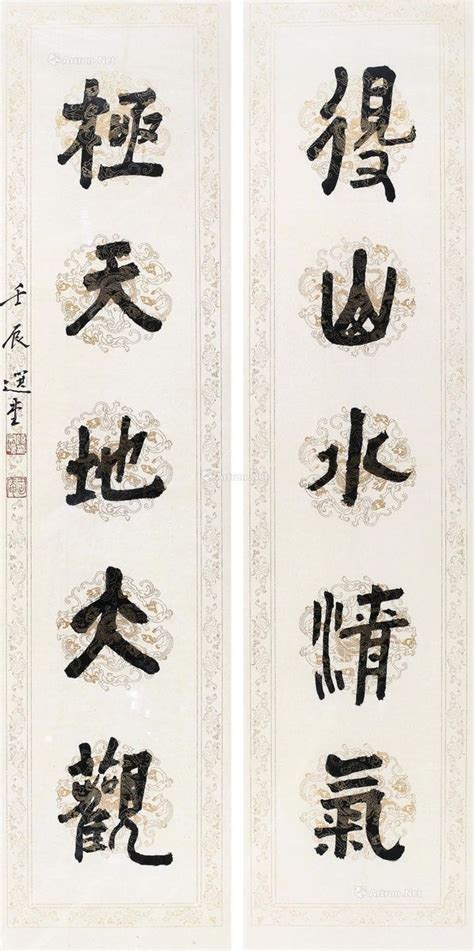 得山水清氣
極天地大觀
壬辰選堂
Artron.Net